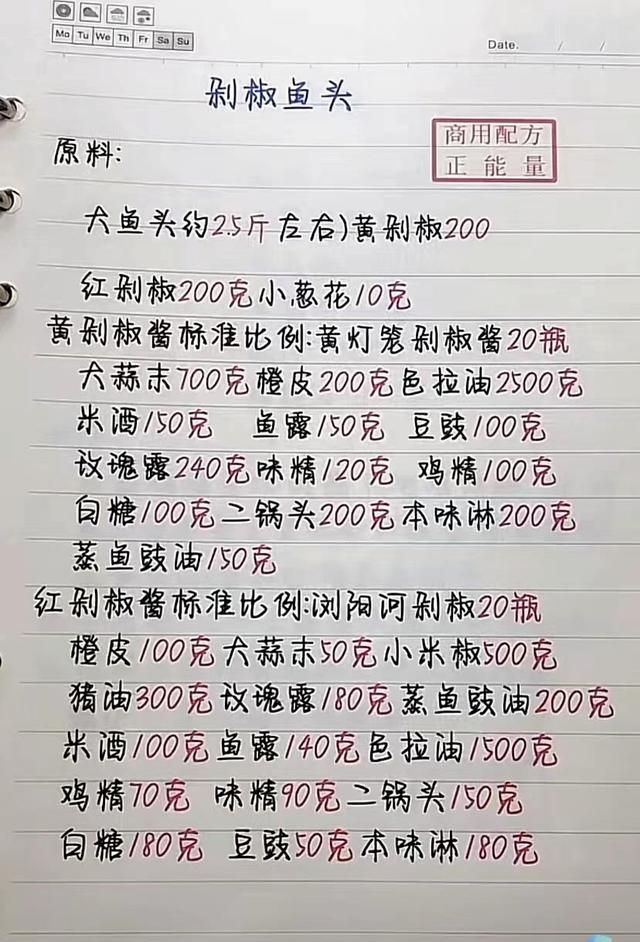 Mo Tu We Th Fr Sa Su
Date. / /
剁椒鱼头
商用配方
正能量
原料:
大鱼头约2.5斤左右)黄剁椒200
红剁椒200克小葱花10克
黄剁椒酱标准比例:黄灯笼剁椒酱20瓶
大蒜末700克橙皮200克色拉油2500克
米酒150克 鱼露150克 豆豉100克
玫瑰露240克味精120克 鸡精100克
白糖100克二锅头200克本味淋200克
蒸鱼豉油150克
红剁椒酱标准比例:浏阳河剁椒20瓶
橙皮100克大蒜末50克小米椒500克
猪油300克玫瑰露180克蒸鱼豉油200克
米酒100克鱼露140克色拉油1500克
鸡精70克 味精90克二锅头150克
白糖180克 豆豉50克本味淋180克